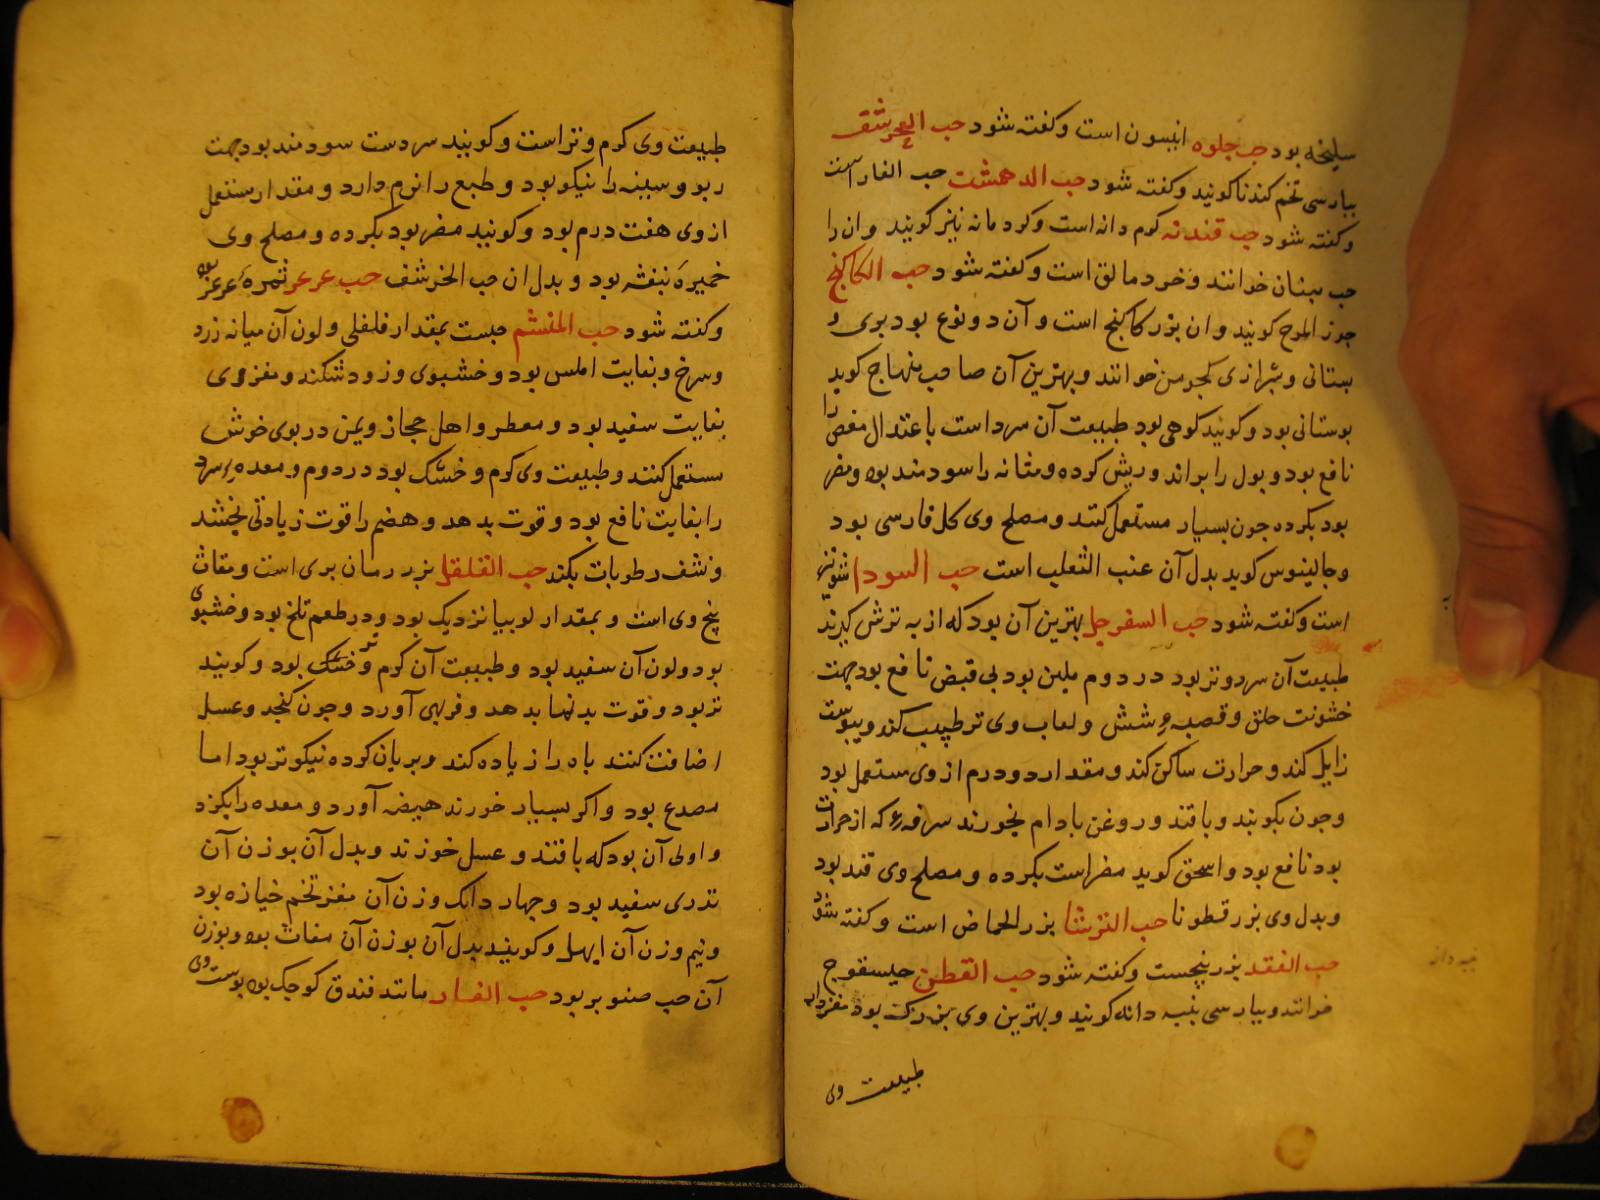 سلیخه بود حب جلوه انیسون است و کفته شود حب الحرشف
ببارسی تخم کندنا کویند و کفته شود حب الدهمشت حب الغار است
و کفته شود حب قندنه کرم دانه است و کرد مانه نیز کویند و ان را
حب سنان خوانند و خرد مالق است و کفته شود حب الکاکنج
جوز المرج کویند و ان بزر کاکنج است و آن دو نوع بود بری و
بستانی و شیرازی کجرمن خوانند و بهترین آن صاحب منهاج کوید
بوستانی بود و کویند کوهی بود طبیعت آن سرد است باعتدال مغص را
نافع بود و بول را براند و ریش کرده و مثانه را سودمند بود و مضر
بود بکرده جون بسیار مستعمل کنند و مصلح وی کل فارسی بود
و جالینوس کوید بدل آن عنب الثعلب است حب السودا شونیز
است و کفته شود حب السفرجل بهترین آن بود که از به ترش کیرند
طبیعت آن سرد و تر بود در دوم ملین بود بی قبض نافع بود جهت
خشونت حلق و قصبه شش و لعاب وی ترطیب کند و یبوست
زایل کند و حرارت ساکن کند و مقدار دو درم از وی مستعمل بود
و جون بکوبند و با قند و روغن بادام بخورند سرفه که از حرارت
بود نافع بود و اسحق کوید مضر است بکرده و مصلح وی قند بود
و بدل وی بزر قطونا حب الترشا بزر الحماض است و کفته شود
حب الفقد بزر پنجست و کفته شود حب القطن حیسفوج
خوانند و ببارسی پنبه دانه کویند و بهترین وی بزرک بود مغز دار
پنبه دانه
طبیعت وی
طبیعت وی کرم و تر است و کویند سردست سودمند بود جهت
ربو و سینه را نیکو بود و طبع را نرم دارد و مقدار مستعمل
از وی هفت درم بود و کویند مضر بود بکرده و مصلح وی
خمیره بنفشه بود و بدل ان حب الخرشف حب عرعر ثمره عرعر بود
و کفته شود حب المنشم حبست بمقدار فلفلی و لون آن میانه زرد
و سرخ و بغایت املس بود و خشبوی و زود شکند و مغز وی
بغایت سفید بود و معطر و اهل حجاز و یمن در بوی خوش
مستعمل کنند و طبیعت وی کرم و خشک بود در دوم و معده سرد
را بغایت نافع بود و قوت بدهد و هضم را قوت زیادتی بخشد
و نشف رطوبات بکند حب القلقل بزر رمان بری است و مغاث
بیخ وی است و بمقدار لوبیا نزدیک بود و در طعم تلخ بود و خشبوی
بود و لون آن سفید بود و طبیعت آن کرم و خشک بود و کویند
تر بود و قوت بدنها بدهد و فربهی آورد و جون کنجد و عسل
اضافت کنند باه را زیاده کند و بریان کرده نیکوتر بود اما
مصدع بود و اکر بسیار خورند هیضه آورد و معده را بکزد
و اولی آن بود که با قند و عسل خورند و بدل آن بوزن آن
تدری سفید بود و جهار دانک وزن آن مغز تخم خیازه بود
و نیم وزن آن ابهل و کویند بدل آن بوزن آن مغاث بود و بوزن
آن حب صنوبر بود حب الغار مانند فندق کوجک بود پوست وی